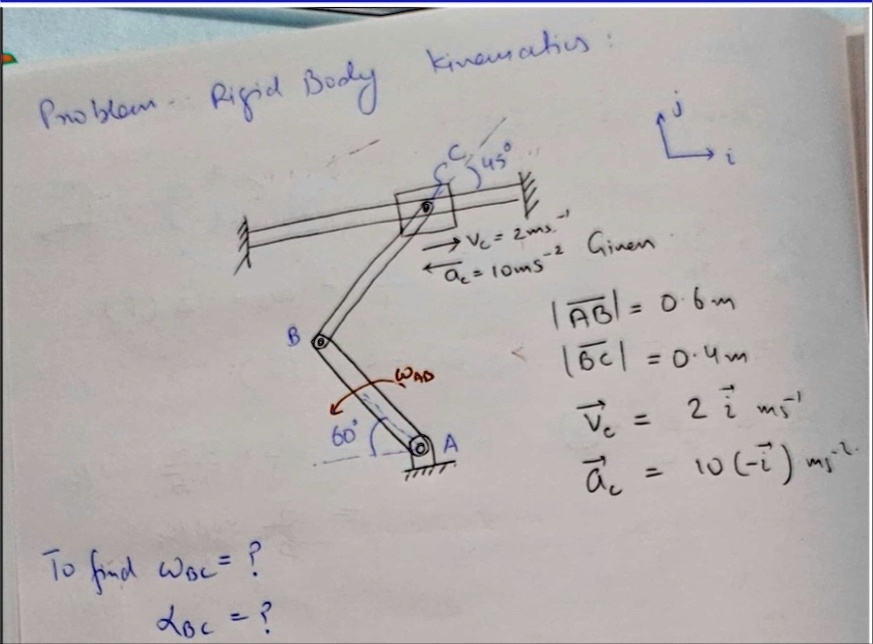 Problem - Rigid Body Kinematics :
j
i
C
45°
→ v_c = 2 ms⁻¹
← a_c = 10 ms⁻² Given
B
ω_AB
60°
A
|AB| = 0.6 m
|BC| = 0.4 m
v⃗_c = 2 i⃗ ms⁻¹
a⃗_c = 10 (-i⃗) ms⁻²
To find ω_BC = ?
α_BC = ?